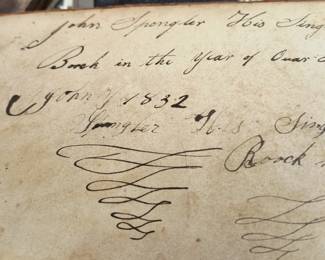 John Spengler His Sing
Boock in the Year of Ouar
John 1832
Spengler His Sing
Boock